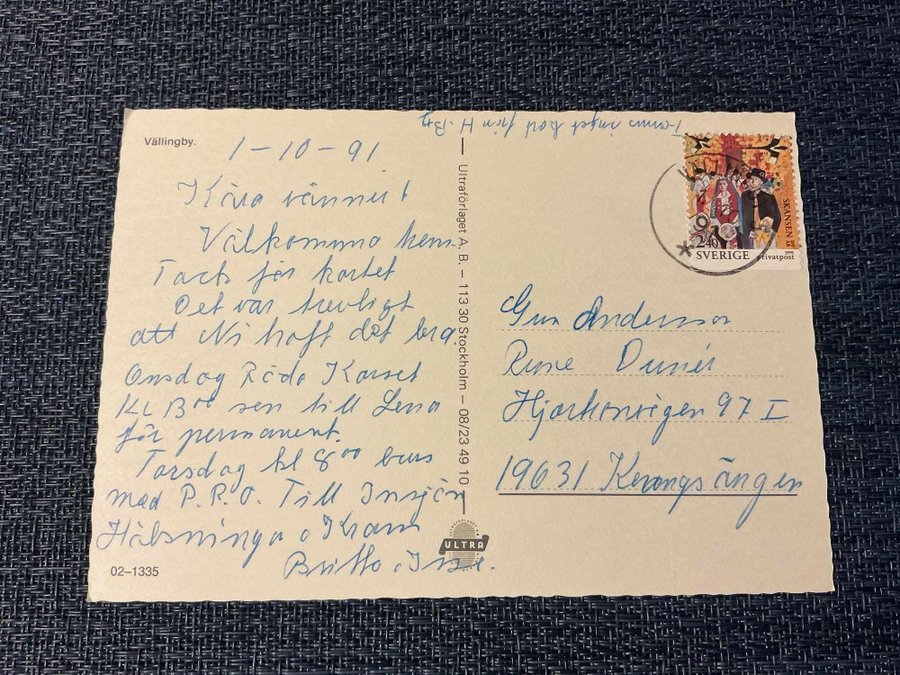 Vällingby.
1-10-91
Kära vänner!
Välkomna hem
Tack för kortet
Det var trevligt
att Ni haft det bra.
Onsdag Röda Korset
Kl 13⁰⁰ sen till Lena
för permanent.
Torsdag kl 8⁰⁰ buss
med P.R.O. Till Insjön
Hälsninga o Kram
Britta o
02-1335
Ultraförlaget A. B. – 113 30 Stockholm – 08/23 49 10
ULTRA
inget kort från H.
SKANSEN
2.40
SVERIGE
privatpost
Gun Andersson
Rune Dunér
97 I
19631 Kungsängen